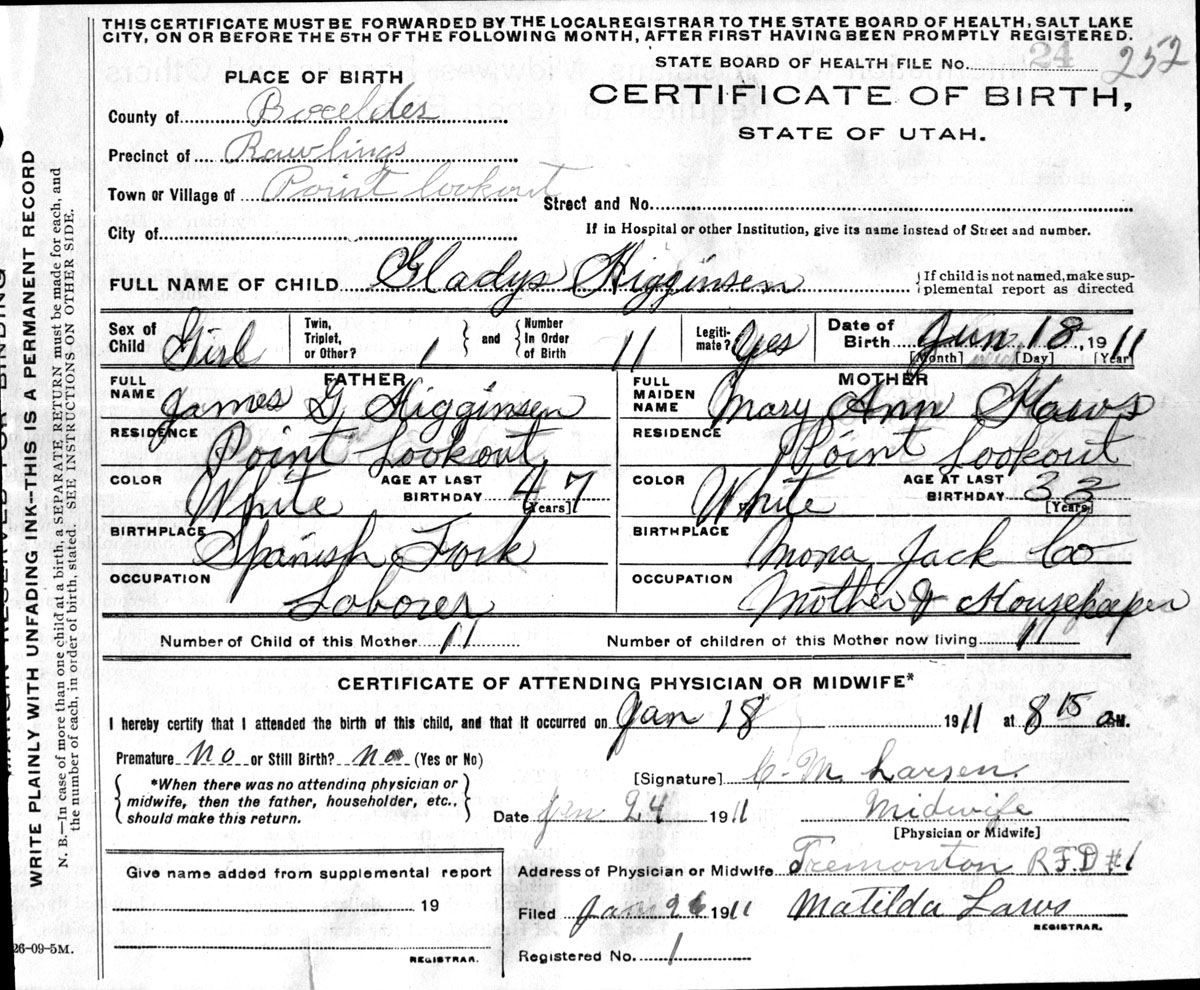 THIS CERTIFICATE MUST BE FORWARDED BY THE LOCAL REGISTRAR TO THE STATE BOARD OF HEALTH, SALT LAKE
CITY, ON OR BEFORE THE 5TH OF THE FOLLOWING MONTH, AFTER FIRST HAVING BEEN PROMPTLY REGISTERED.
STATE BOARD OF HEALTH FILE No. 24 252
PLACE OF BIRTH
CERTIFICATE OF BIRTH,
STATE OF UTAH.
County of Boxelder
Precinct of Rawlings
Town or Village of Point lookout
Street and No.
City of
If in Hospital or other Institution, give its name instead of Street and number.
FULL NAME OF CHILD Gladys Higginsen
{If child is not named, make sup-
plemental report as directed
Sex of Child Girl
Twin, Triplet, or Other? 1 } and { Number In Order of Birth 11
Legiti-mate? Yes
Date of Birth Jun 18, 1911
[Month] [Day] [Year]
FATHER
FULL NAME James G Higginsen
RESIDENCE Point Lookout
COLOR White
AGE AT LAST BIRTHDAY 47
[Years]
BIRTHPLACE Spanish Fork
OCCUPATION Laborer
MOTHER
FULL MAIDEN NAME Mary Ann Haws
RESIDENCE Point Lookout
COLOR White
AGE AT LAST BIRTHDAY 33
[Years]
BIRTHPLACE Mona Jack Co
OCCUPATION Mother & Housekeeper
Number of Child of this Mother 11
Number of children of this Mother now living 11
CERTIFICATE OF ATTENDING PHYSICIAN OR MIDWIFE*
I hereby certify that I attended the birth of this child, and that it occurred on Jan 18 1911 at 8 15 a.M.
Premature No or Still Birth? no (Yes or No)
*When there was no attending physician or
midwife, then the father, householder, etc.,
should make this return.
[Signature] C. M Larsen
Date Jan 24 1911
Midwife
[Physician or Midwife]
Give name added from supplemental report
19
REGISTRAR.
Address of Physician or Midwife Tremonton R.F.D #1
Filed Jan 26 1911 Matilda Laws
REGISTRAR.
Registered No. 1
26-09-5M.
WRITE PLAINLY WITH UNFADING INK--THIS IS A PERMANENT RECORD
N. B.—In case of more than one child at a birth, a SEPARATE RETURN must be made for each, and
the number of each, in order of birth, stated. SEE INSTRUCTIONS ON OTHER SIDE.